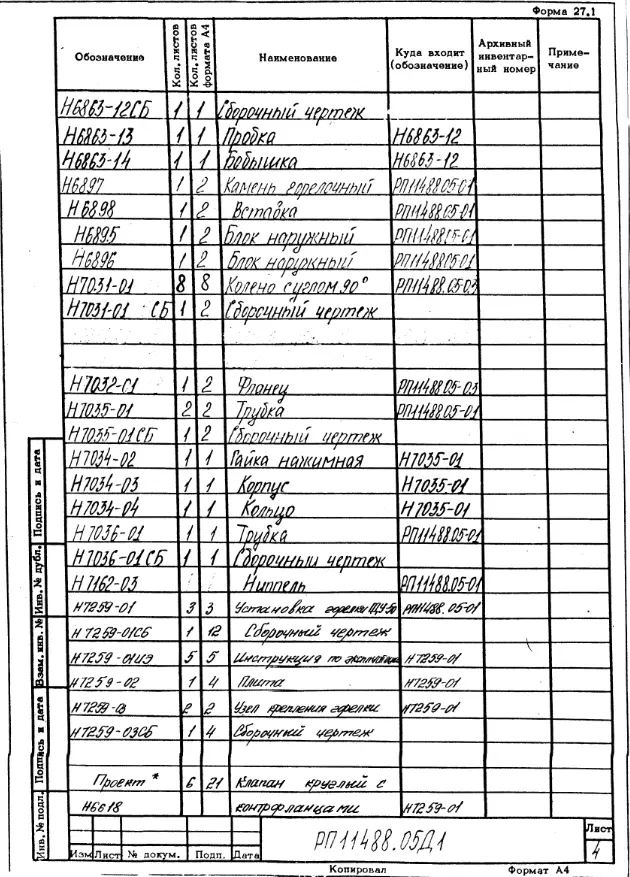 Форма 27.1
Обозначение Кол. листов Кол. листов формата А4 Наименование Куда входит (обозначение) Архивный инвентарный номер Примечание
Н6863-12СБ 1 1 Сборочный чертеж
Н6863-13 1 1 Пробка Н6863-12
Н6863-14 1 1 Бобышка Н6863-12
Н6897 1 2 Камень горелочный РП11488.05-01
Н6898 1 2 Вставка РП11488.05-01
Н6895 1 2 Блок наружный РП11488.05-01
Н6896 1 2 Блок наружный РП11488.05-01
Н7031-01 8 8 Колено с углом 90° РП11488.05-03
Н7031-01 СБ 1 2 Сборочный чертеж
Н7032-01 1 2 Фланец РП11488.05-03
Н7035-01 2 2 Трубка РП11488.05-01
Н7035-01СБ 1 2 Сборочный чертеж
Н7034-02 1 1 Гайка нажимная Н7035-01
Н7034-03 1 1 Корпус Н7035-01
Н7034-04 1 1 Кольцо Н7035-01
Н7036-01 1 1 Трубка РП11488.05-01
Н7036-01СБ 1 1 Сборочный чертеж
Н7162-03 Ниппель РП11488.05-01
Н7259-01 3 3 Установка горелки РП11488.05-01
Н7259-01СБ 1 12 Сборочный чертеж
Н7259-01ИЭ 5 5 Инструкция по эксплуатации Н7259-01
Н7259-02 1 4 Плита Н7259-01
Н7259-03 2 2 Узел крепления горелки Н7259-01
Н7259-03СБ 1 4 Сборочный чертеж
Проект * 6 21 Клапан круглый с
Н6618 контрфланцами Н7259-01
Инв. № подл. Подпись и дата Взам. инв. № Инв. № дубл. Подпись и дата
Изм Лист № докум. Подп. Дата
РП11488.05Д1
Лист
4
Копировал Формат А4